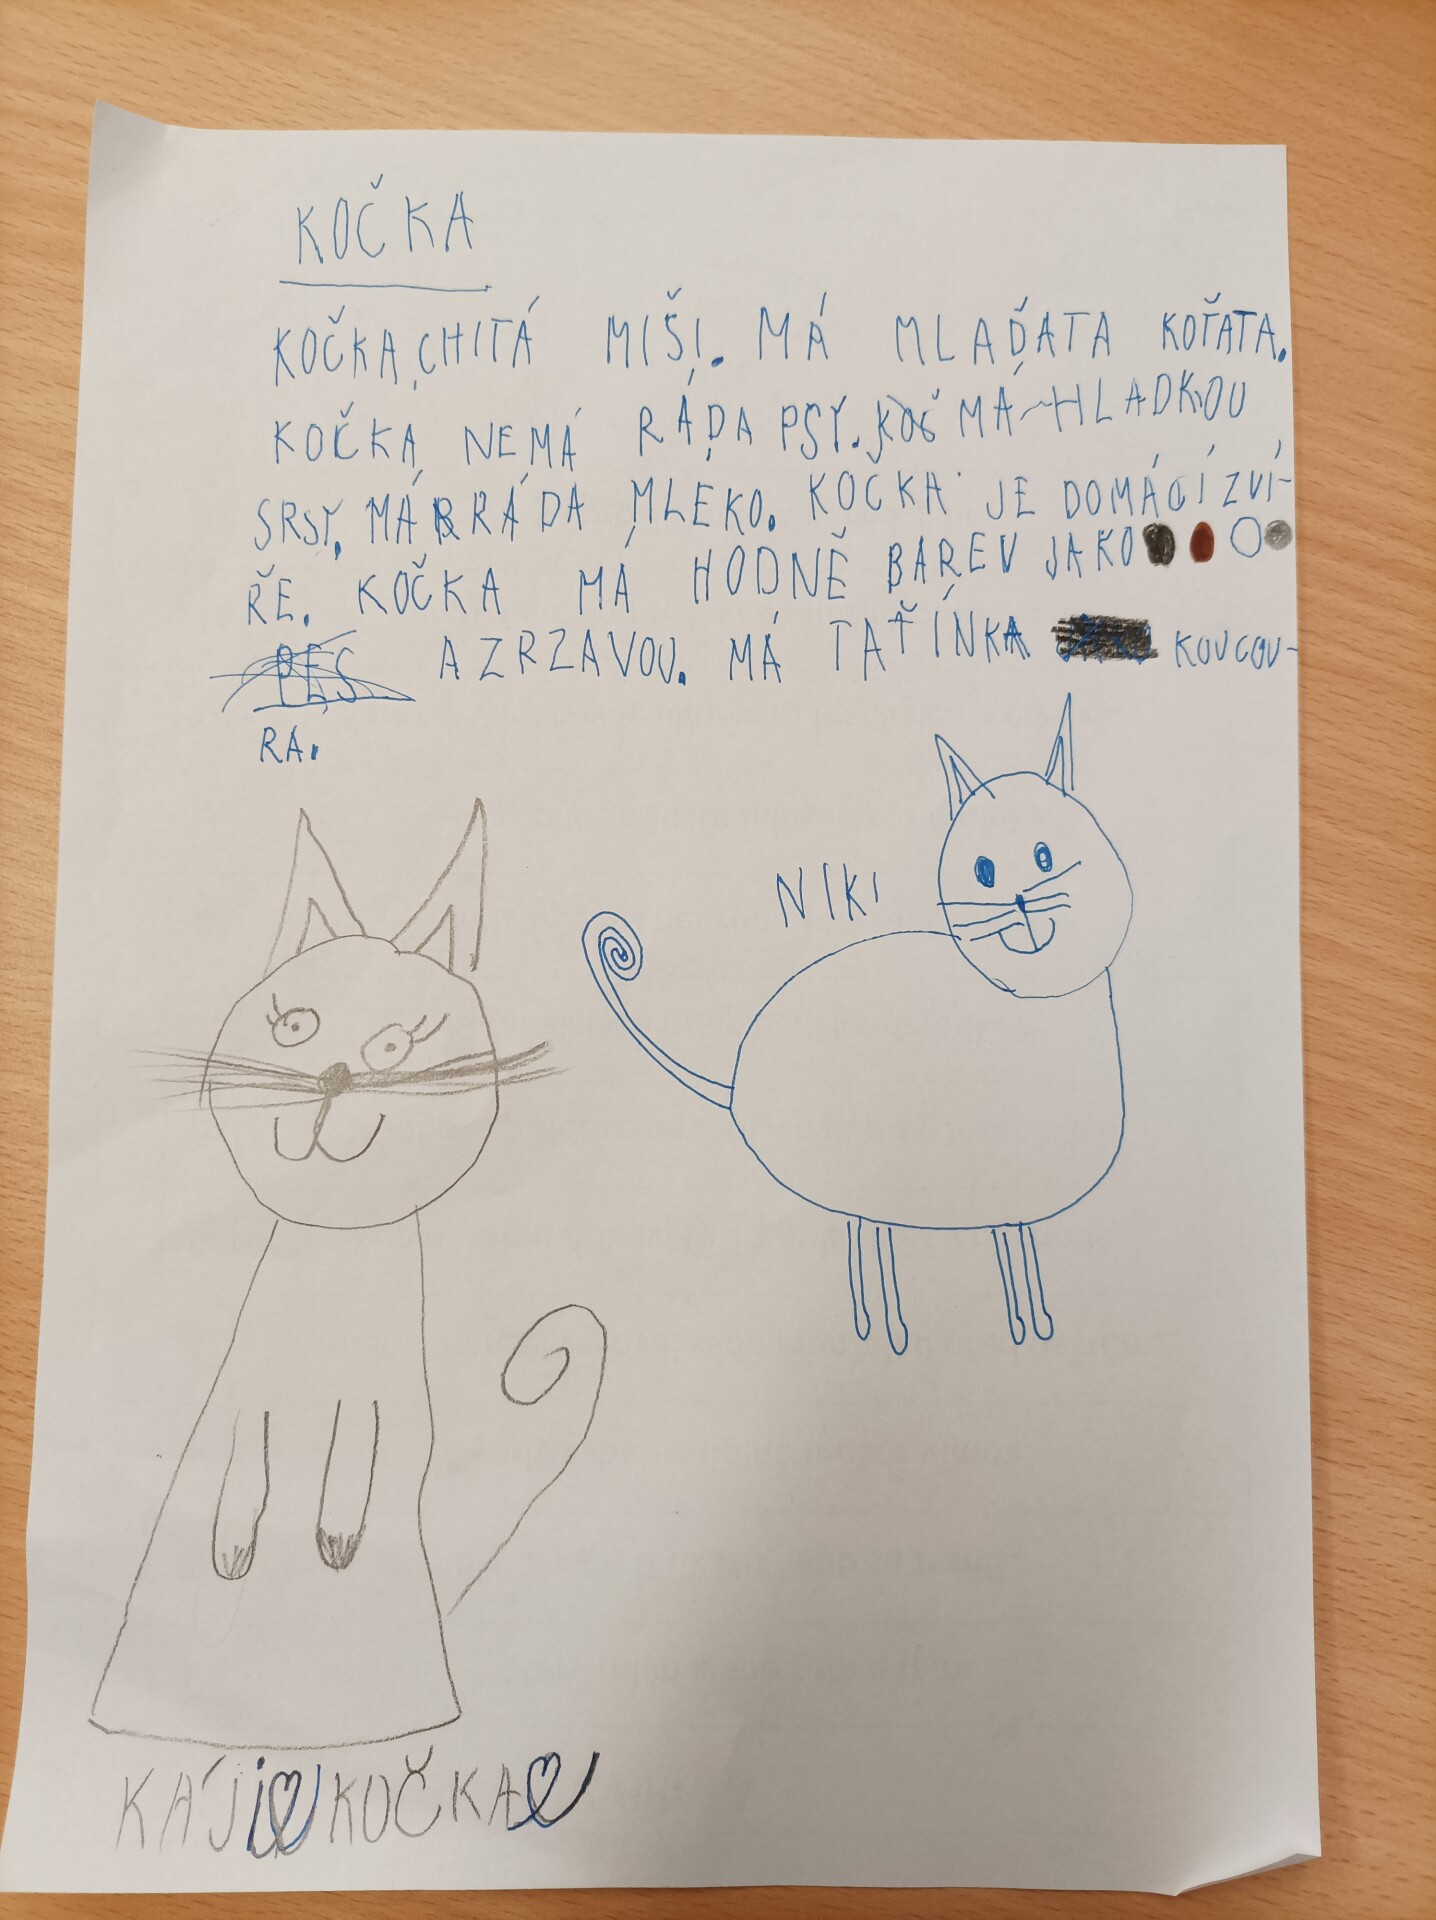 KOČKA
KOČKA CHITÁ MIŠI. MÁ MLAĎATA KOŤATA.
KOČKA NEMÁ RÁDA PSY. MÁ HLADKOU
SRSY. MÁ RÁDA MLEKO. KOČKA JE DOMÁCÍ ZVÍ-
ŘE. KOČKA MÁ HODNĚ BAREV JAKO
PES A ZRZAVOU. MÁ TAŤÍNKA KOUCOU-
RA.
NIKI
KÁJI KOČKA